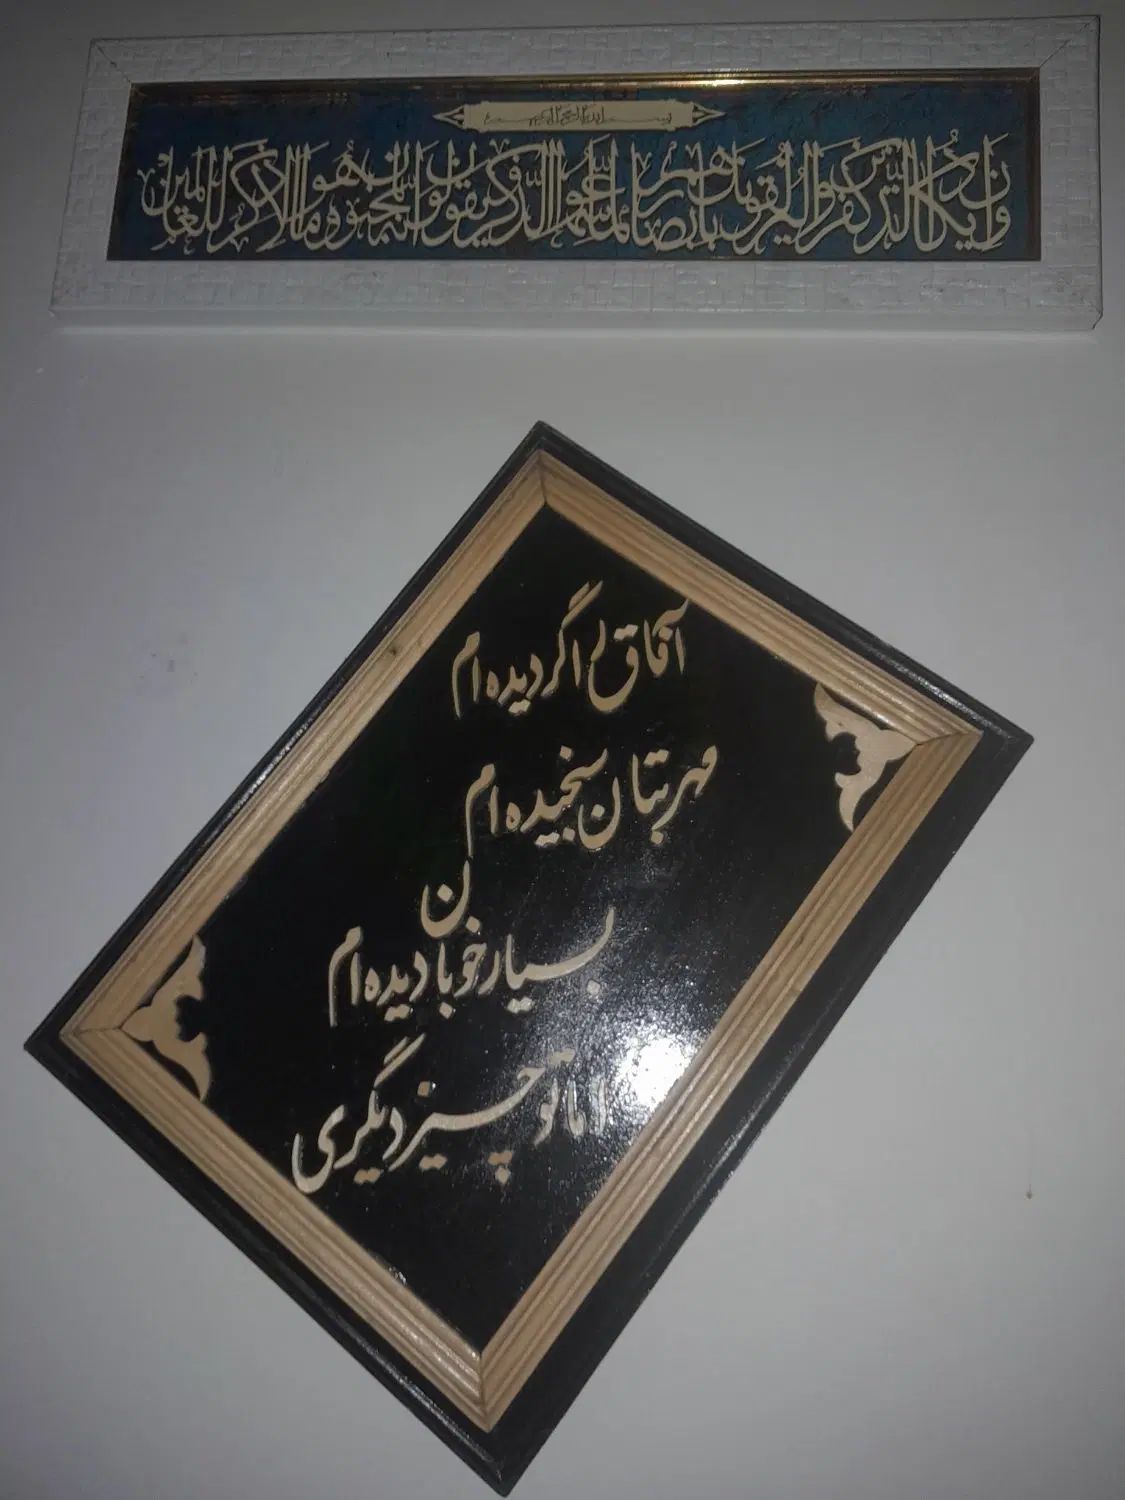 بسم الله الرحمن الرحیم
وان یکاد الذین کفروا لیزلقونک بابصارهم لما سمعوا الذکر ویقولون انه لمجنون وما هو الا ذکر للعالمین
آفاق را گردیده ام
مهر بتان سنجیده ام
بسیار خوبان دیده ام
اما تو چیز دیگری